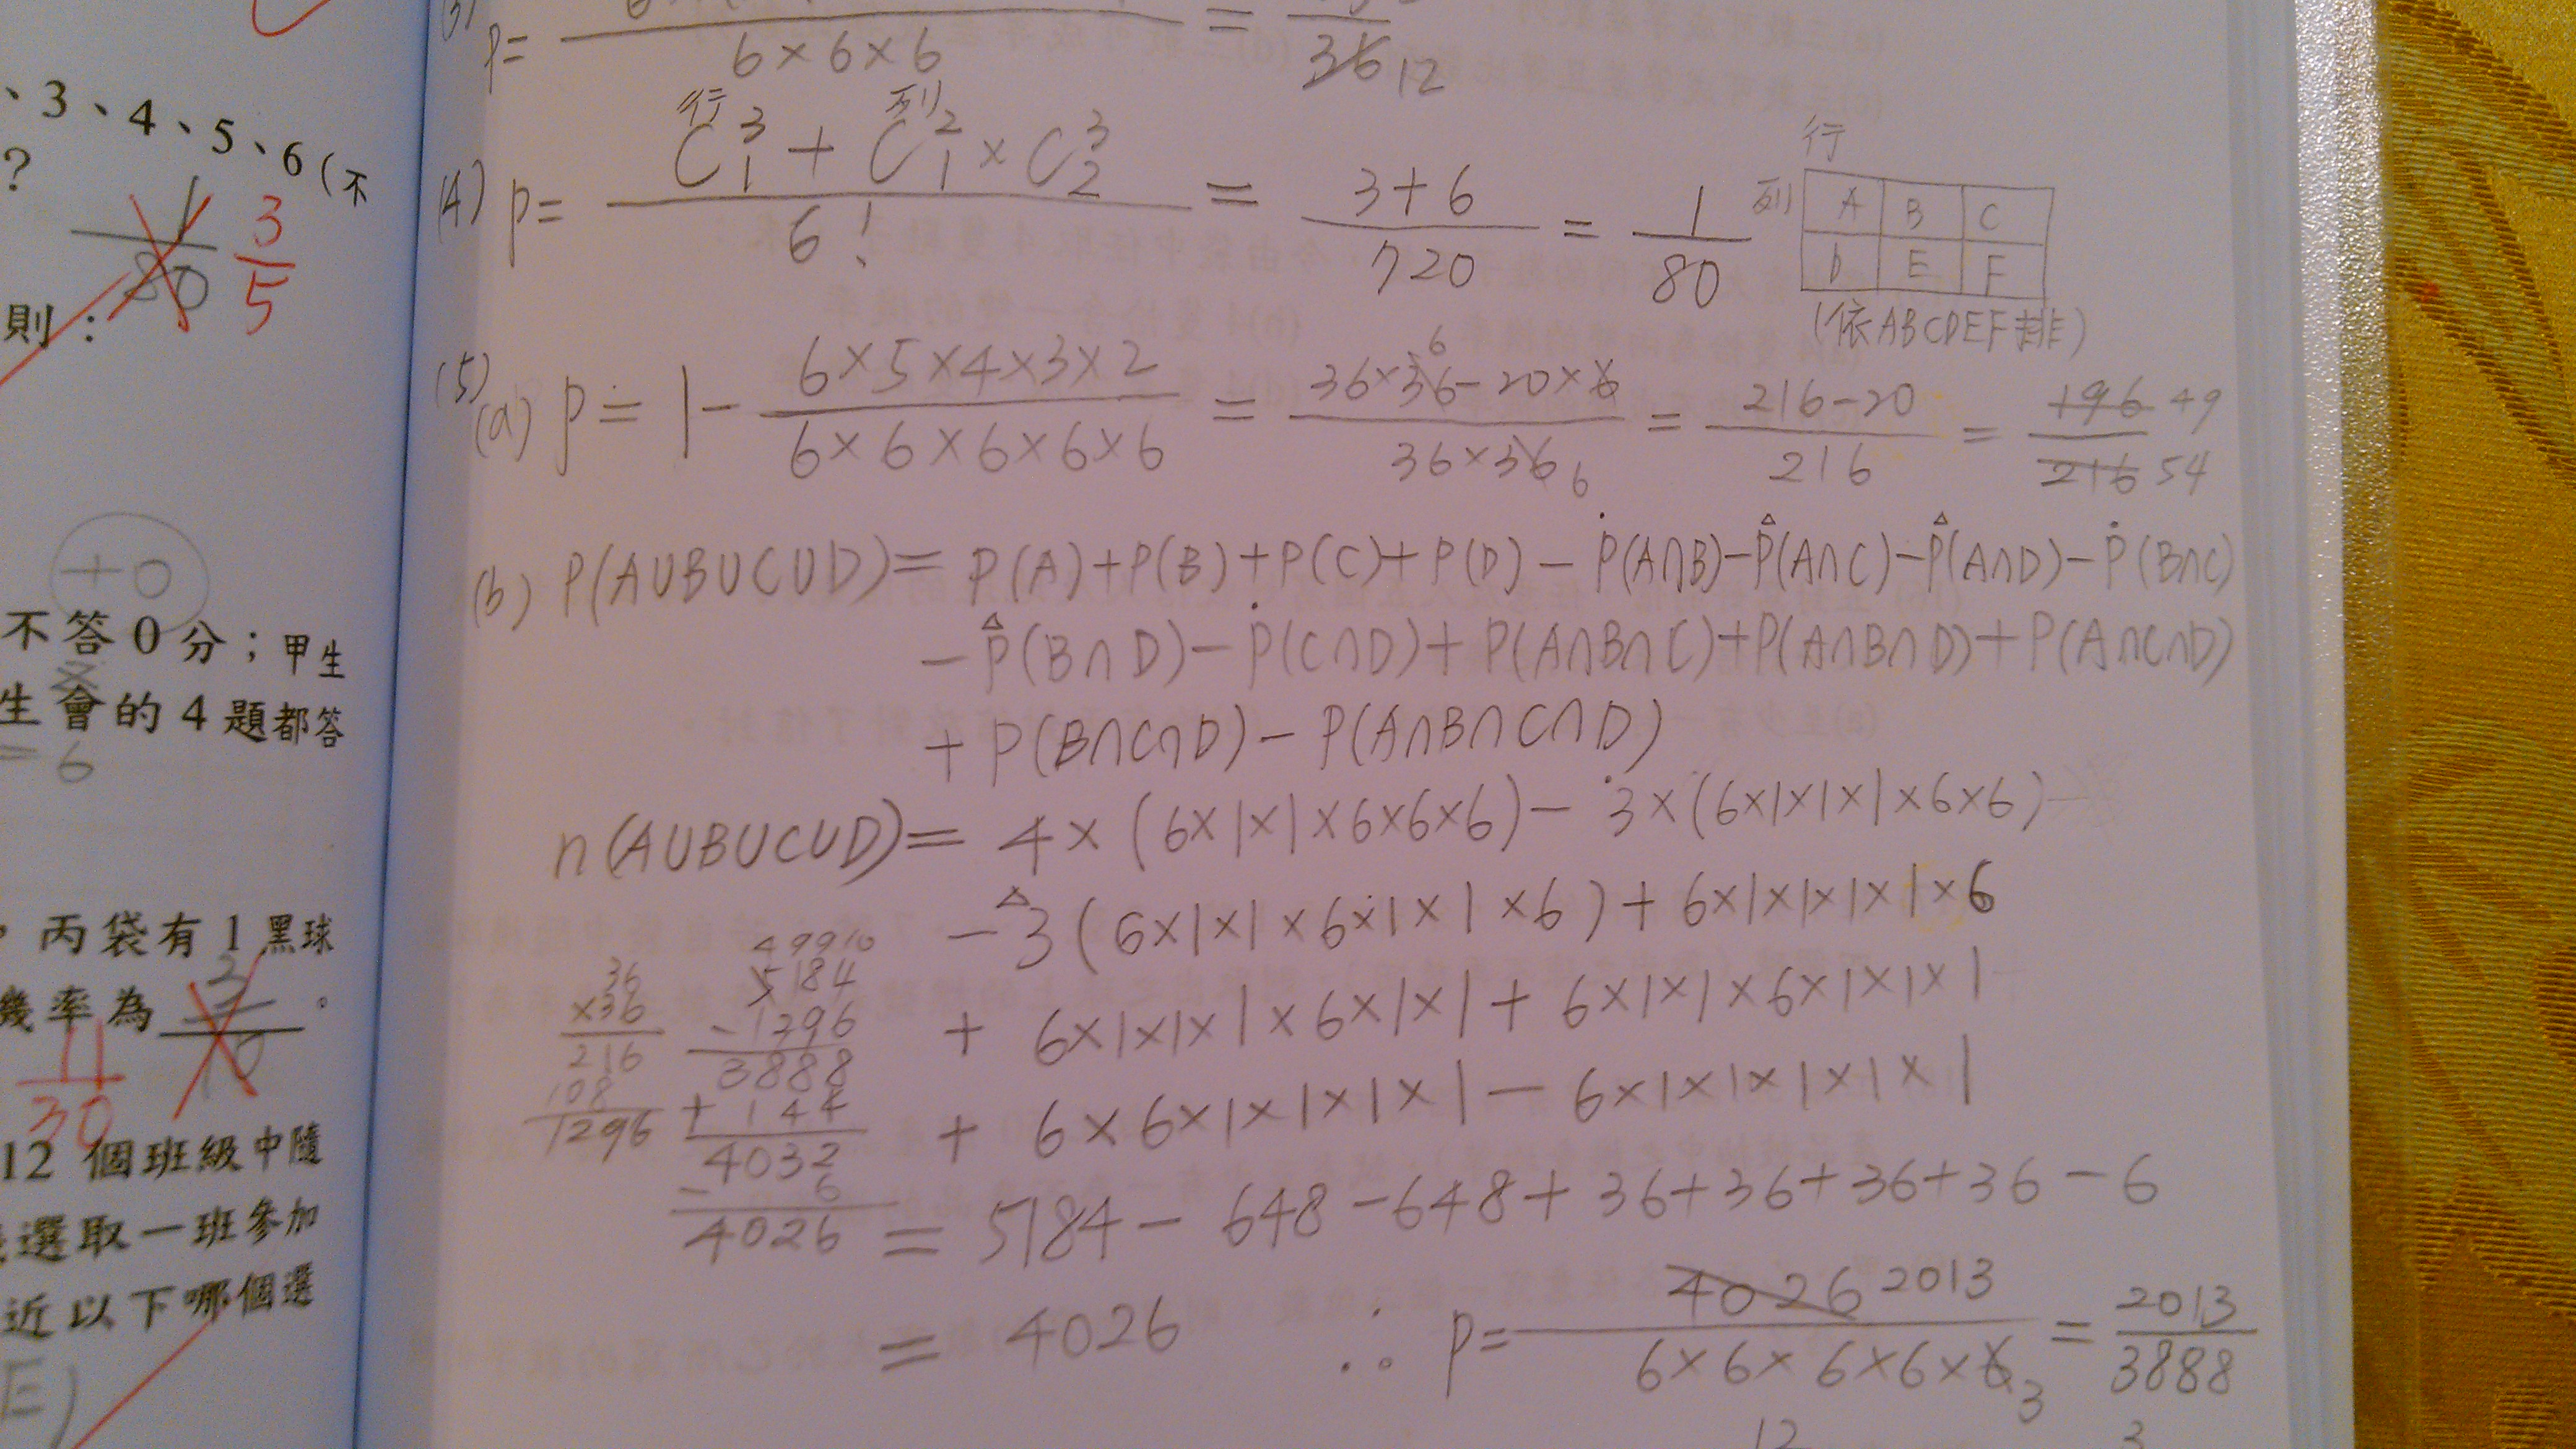 、3、4、5、6(不
?
1/80 3/5
則:
+0
不答0分;甲生
生會的4題都答
= 6
,丙袋有1黑球
幾率為 。
11/30
12 個班級中隨
選取一班參加
近以下哪個選
E)
(3) P= /(6×6×6) = /36 12
行 列
(4) P= (C^3_1 + C^2_1 × C^3_2)/6! = (3+6)/720 = 1/80
行
列 A B C
D E F
(依ABCDEF排)
(5)
(a) P = 1- (6×5×4×3×2)/(6×6×6×6×6) = (36×36-20×6)/(36×36) 6 6 = (216-20)/216 = 196/216 49 54
(b) P(A∪B∪C∪D)= P(A)+P(B)+P(C)+P(D)-P(A∩B)-P(A∩C)-P(A∩D)-P(B∩C)
-P(B∩D)-P(C∩D)+P(A∩B∩C)+P(A∩B∩D)+P(A∩C∩D)
+P(B∩C∩D)-P(A∩B∩C∩D)
n(A∪B∪C∪D)= 4×(6×1×1×6×6×6)-3×(6×1×1×1×6×6)
-3(6×1×1×6×1×1×6)+6×1×1×1×1×6
+ 6×1×1×1×6×1×1+6×1×1×6×1×1×1
+ 6×6×1×1×1×1-6×1×1×1×1×1
= 5184-648-648+36+36+36+36-6
= 4026 ∴ P= 4026 2013/(6×6×6×6×6) 3 = 2013/3888
36
×36
216
108
1296
49910
5184
-1296
3888
+144
4032
- 6
4026
12 3